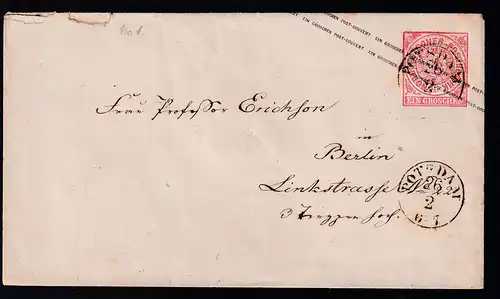 No 1.
EIN GROSCHEN POST-COUVERT EIN GROSCHEN POST-COUVERT EIN GROSCHEN
NORDDEUTSCHER POSTBEZIRK
EIN GROSCHEN
POTSDAM
26
2
Frau Professor Erichson
in
Berlin
Linkstrasse No 22
3 Treppen hoch.
POTSDAM
26
2
6-7